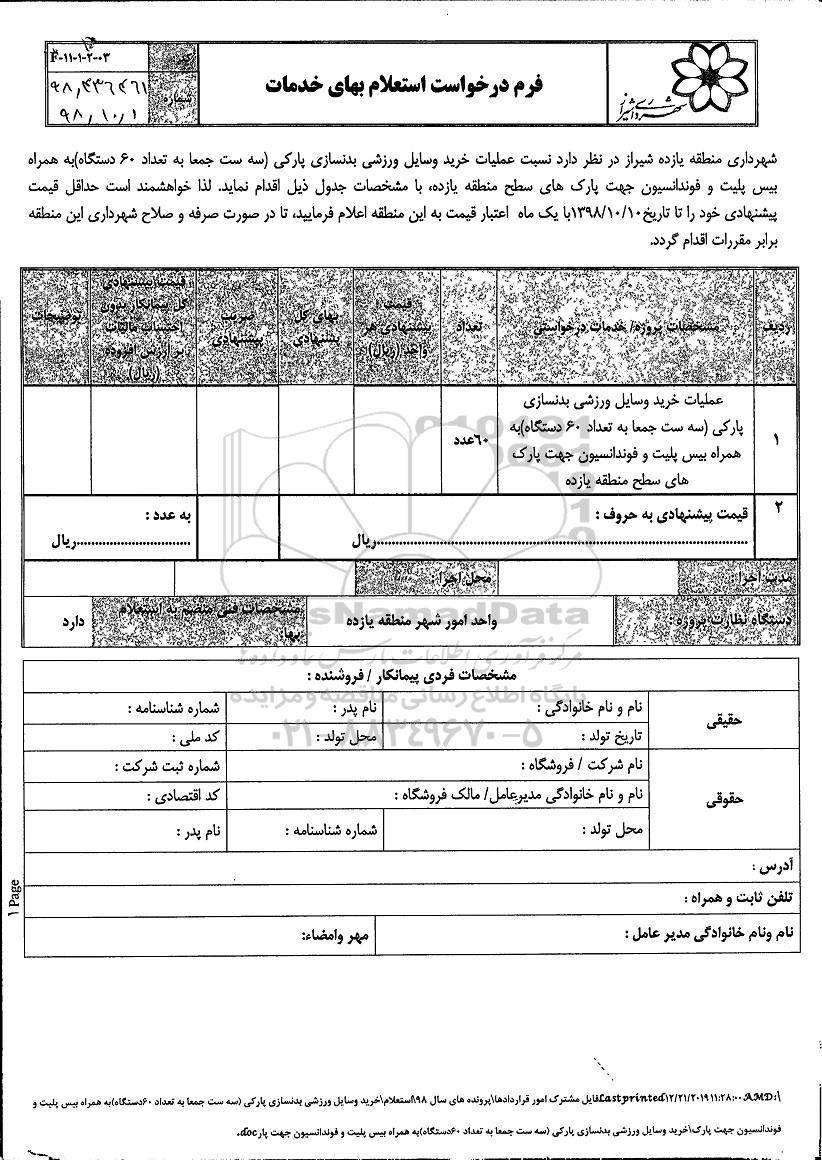 کد
F-۱۱-۱-۲-۰۳
شماره
۹۸,۴۳۶۴۶۱
۹۸,۱۰,۱
فرم درخواست استعلام بهای خدمات
شهرداری شیراز
شهرداری منطقه یازده شیراز در نظر دارد نسبت عملیات خرید وسایل ورزشی بدنسازی پارکی (سه ست جمعا به تعداد ۶۰ دستگاه)به همراه
بیس پلیت و فوندانسیون جهت پارک های سطح منطقه یازده، با مشخصات جدول ذیل اقدام نماید. لذا خواهشمند است حداقل قیمت
پیشنهادی خود را تا تاریخ۱۳۹۸/۱۰/۱۰با یک ماه اعتبار قیمت به این منطقه اعلام فرمایید، تا در صورت صرفه و صلاح شهرداری این منطقه
برابر مقررات اقدام گردد.
ردیف
مشخصات پروژه/ خدمات درخواستی
تعداد
قیمت
پیشنهادی هر
واحد (ریال)
بهای کل
پیشنهادی
ضریب
پیشنهادی
قیمت پیشنهادی
کل پیمانکار بدون
احتساب مالیات
بر ارزش افزوده
(ریال)
توضیحات
۱
عملیات خرید وسایل ورزشی بدنسازی
پارکی (سه ست جمعا به تعداد ۶۰ دستگاه)به
همراه بیس پلیت و فوندانسیون جهت پارک
های سطح منطقه یازده
۶۰عدد
۲
قیمت پیشنهادی به حروف :
..........ریال
به عدد :
..........ریال
مدت اجرا :
محل اجرا :
دستگاه نظارت پروژه :
واحد امور شهر منطقه یازده
مشخصات فنی منضم به استعلام
بها:
دارد
sNamadData
مرکز فرآوری اطلاعات پارس نماد داده ها
پایگاه اطلاع رسانی مناقصه و مزایده
۰۲۱-۸۸۳۴۹۶۷۰-۵
مشخصات فردی پیمانکار / فروشنده :
حقیقی
نام و نام خانوادگی :
نام پدر :
شماره شناسنامه :
تاریخ تولد :
محل تولد :
کد ملی :
حقوقی
نام شرکت / فروشگاه :
شماره ثبت شرکت :
نام و نام خانوادگی مدیرعامل/ مالک فروشگاه :
کد اقتصادی :
محل تولد :
شماره شناسنامه :
نام پدر :
آدرس :
تلفن ثابت و همراه :
نام ونام خانوادگی مدیر عامل :
مهر وامضاء:
۱ Page
Last printed۱۲/۲۱/۲۰۱۹ ۱۱:۲۸:۰۰ AMD:\فایل مشترک امور قراردادها\پرونده های سال ۹۸\استعلام\خرید وسایل ورزشی بدنسازی پارکی (سه ست جمعا به تعداد ۶۰دستگاه)به همراه بیس پلیت و
فوندانسیون جهت پارک\خرید وسایل ورزشی بدنسازی پارکی (سه ست جمعا به تعداد ۶۰دستگاه)به همراه بیس پلیت و فوندانسیون جهت پار.doc